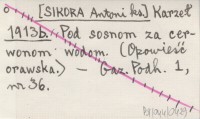 [SIKORA Antoni ks] Karzeł
1913b. Pod sosnom za cer-
wonom wodom. (Opowieść
orawska.) — Gaz. Podh. 1,
nr 36.